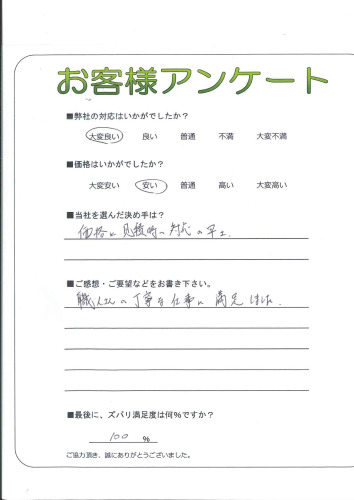 お客様アンケート
■弊社の対応はいかがでしたか？
大変良い 良い 普通 不満 大変不満
■価格はいかがでしたか？
大変安い 安い 普通 高い 大変高い
■当社を選んだ決め手は？
価格と見積時の対応の早さ.
■ご感想・ご要望などをお書き下さい。
職人さんの丁寧な仕事に満足しました.
■最後に、ズバリ満足度は何%ですか？
100 %
ご協力頂き、誠にありがとうございました。